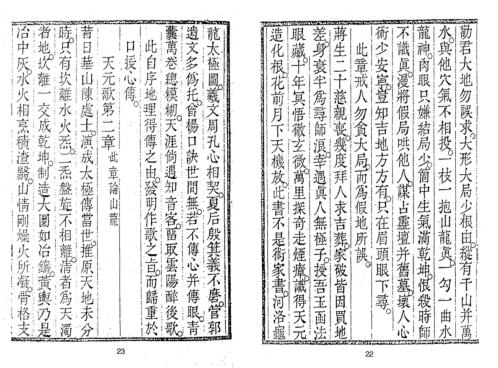 勸君大地勿誤求。大形大局少根由。縱有千山并萬
水。與他穴氣不相投。一枝一抱山龍真。一勾一曲水
龍神。肉眼只嫌結局少。箇中生氣滿乾坤。恨殺時師
不識真。漫將假局哄他人。謀占靈壇并舊墓。壞人心
術少安寧。豈知吉地方方有。只在眉頭眼下尋。
此章戒人勿貪大局。而為假地所誤。
蔣生二十慈親喪。幾度拜人求吉葬。家破皆因買地
差。身衰半為尋師浪。幸遇真人無極子。授吾玉函法
眼藏。十年真悟徹玄微。萬里探奇走煙瘴。識得天元
造化根。花前月下天機放。此書不是術家書。河洛龜
22
龍太極圖。羲文周孔心相契。夏后殷箕義不磨。管郭
遺文多偽托。曾楊口訣世間無。若不傳心并傳眼。青
囊萬卷總模糊。天涯倘遇知音客。留取雲陽醉後歌。
此自序地理得傳之由。發明作歌之旨。而歸重於
口授心傳。
天元歌第二章 此章論山龍
昔日華山陳處士。演成太極傳當世。推原天地未分
時。只有坎離水火炁。二炁盤旋不相離。清者為天濁
者地。坎離一交成乾坤。制造大圖如冶鑄。黃輿乃是
冶中灰。水火相烹積渣翳。山情剛燥火所凝。骨格支
23